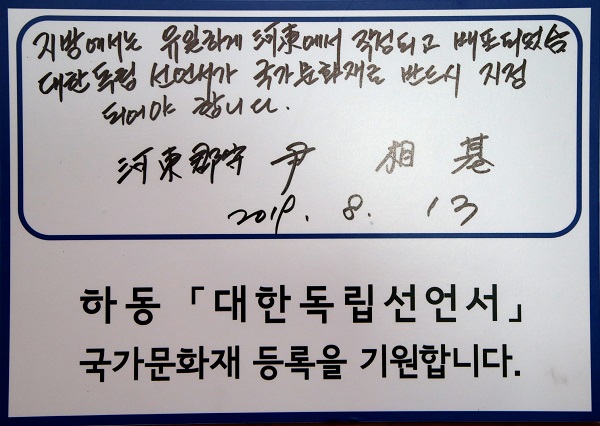 지방에서는 유일하게 河東에서 작성되고 배포되었음
대한독립 선언서가 국가문화재로 반드시 지정
되어야 합니다.
河東郡守 尹相基
2019. 8. 13
하동 「대한독립선언서」
국가문화재 등록을 기원합니다.